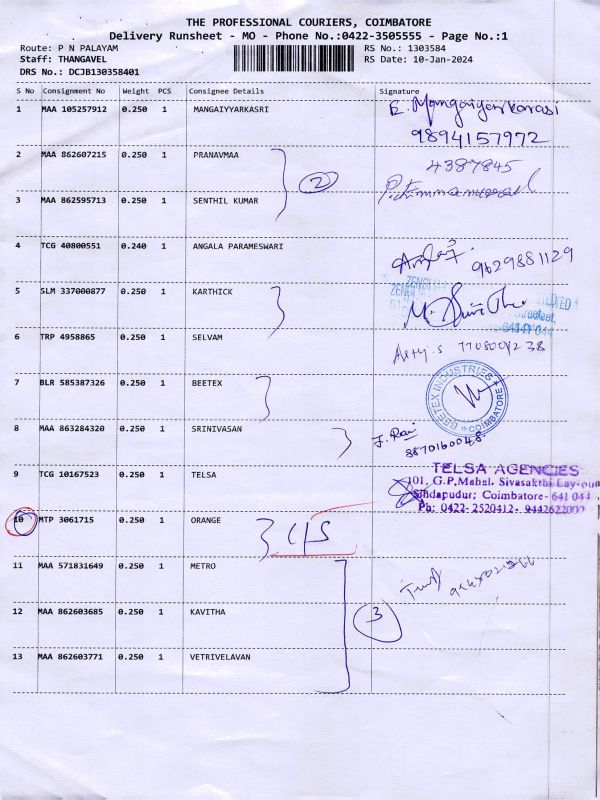 THE PROFESSIONAL COURIERS, COIMBATORE
Delivery Runsheet - MO - Phone No.:0422-3505555 - Page No.:1
Route: P N PALAYAM RS No.: 1303584
Staff: THANGAVEL RS Date: 10-Jan-2024
DRS No.: DCJB130358401
S No Consignment No Weight PCS Consignee Details Signature
1 MAA 105257912 0.250 1 MANGAIYYARKASRI E. Mangaiyarkarasi
9894157972
2 MAA 862607215 0.250 1 PRANAVMAA 4387845
2
3 MAA 862595713 0.250 1 SENTHIL KUMAR
4 TCG 40800551 0.240 1 ANGALA PARAMESWARI 9629881129
5 SLM 337000877 0.250 1 KARTHICK
6 TRP 4958865 0.250 1 SELVAM
7 BLR 585387326 0.250 1 BEETEX
BEETEX INDUSTRIES
COIMBATORE
8 MAA 863284320 0.250 1 SRINIVASAN J. Rani
8870160048
9 TCG 10167523 0.250 1 TELSA
TELSA AGENCIES
101, G.P.Mahal, Sivasakthi Lay-out
Sindapudur; Coimbatore- 641 044
Ph: 0422-2520412- 9442622000
10 MTP 3061715 0.250 1 ORANGE C/S
11 MAA 571831649 0.250 1 METRO
12 MAA 862603685 0.250 1 KAVITHA 3
13 MAA 862603771 0.250 1 VETRIVELAVAN